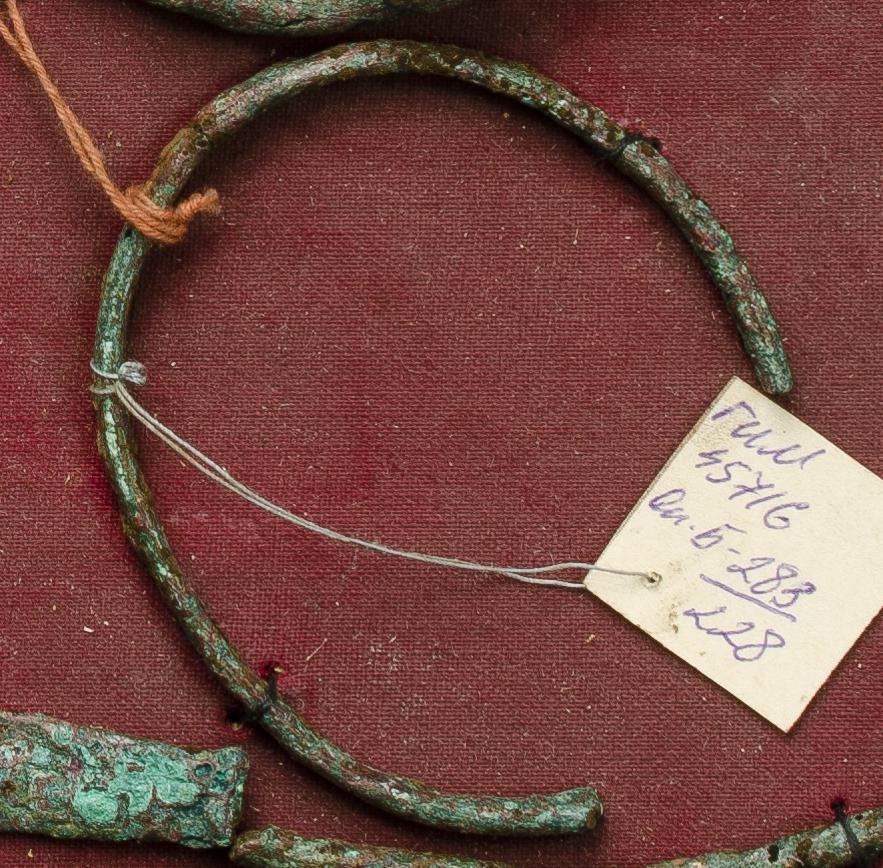 ГИМ
45716
Оп. Б-283
228